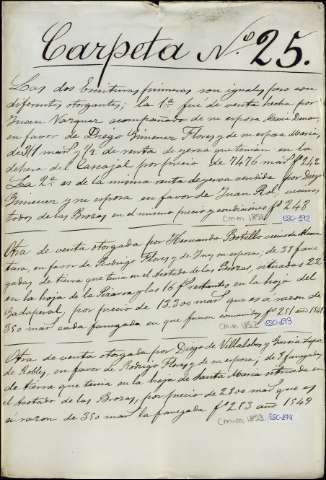 Carpeta Nº 25.
Las dos Escrituras primeras son iguales pero son
diferentes otorgantes; la 1ª fué de venta hecha por
Juan Vazquez acompañado de su esposa
en favor de Diego Gimenez Flores y de su esposa
de 311 mars y 1/2 de renta de yerva que tenian en la
dehesa del Cascajal por precio de 7476 mars fº 242
La 2ª es de la misma renta de yerva vendida por Diego
Gimenez y su esposa en favor de Juan Rol vecinos
todos de las Brozas en el mismo precio y condiciones fº 248
Otra de venta otorgada por Hernando Botello vecino de
en favor de Rodrigo Flores y de Ines su esposa, de 38 fane
gadas de tierra que tenia en el Acotado de las Brozas, situadas 22
en la hoja de y las 16 restantes en la hoja del
por precio de 13.300 mars que es a razon de
350 mars cada fanegada en que fueron fº 251 año 1548
Otra de venta otorgada por Diego de Villalobos y Garcia Lopez
de Robles, en favor de Rodrigo Flores y de su esposa, de fanegadas
de tierra que tenia en la hoja de Santa Marta situada en
el Acotado de las Brozas, por precio de 2800 mars que es
a razon de 350 mars la fanegada fº 213 año 1549